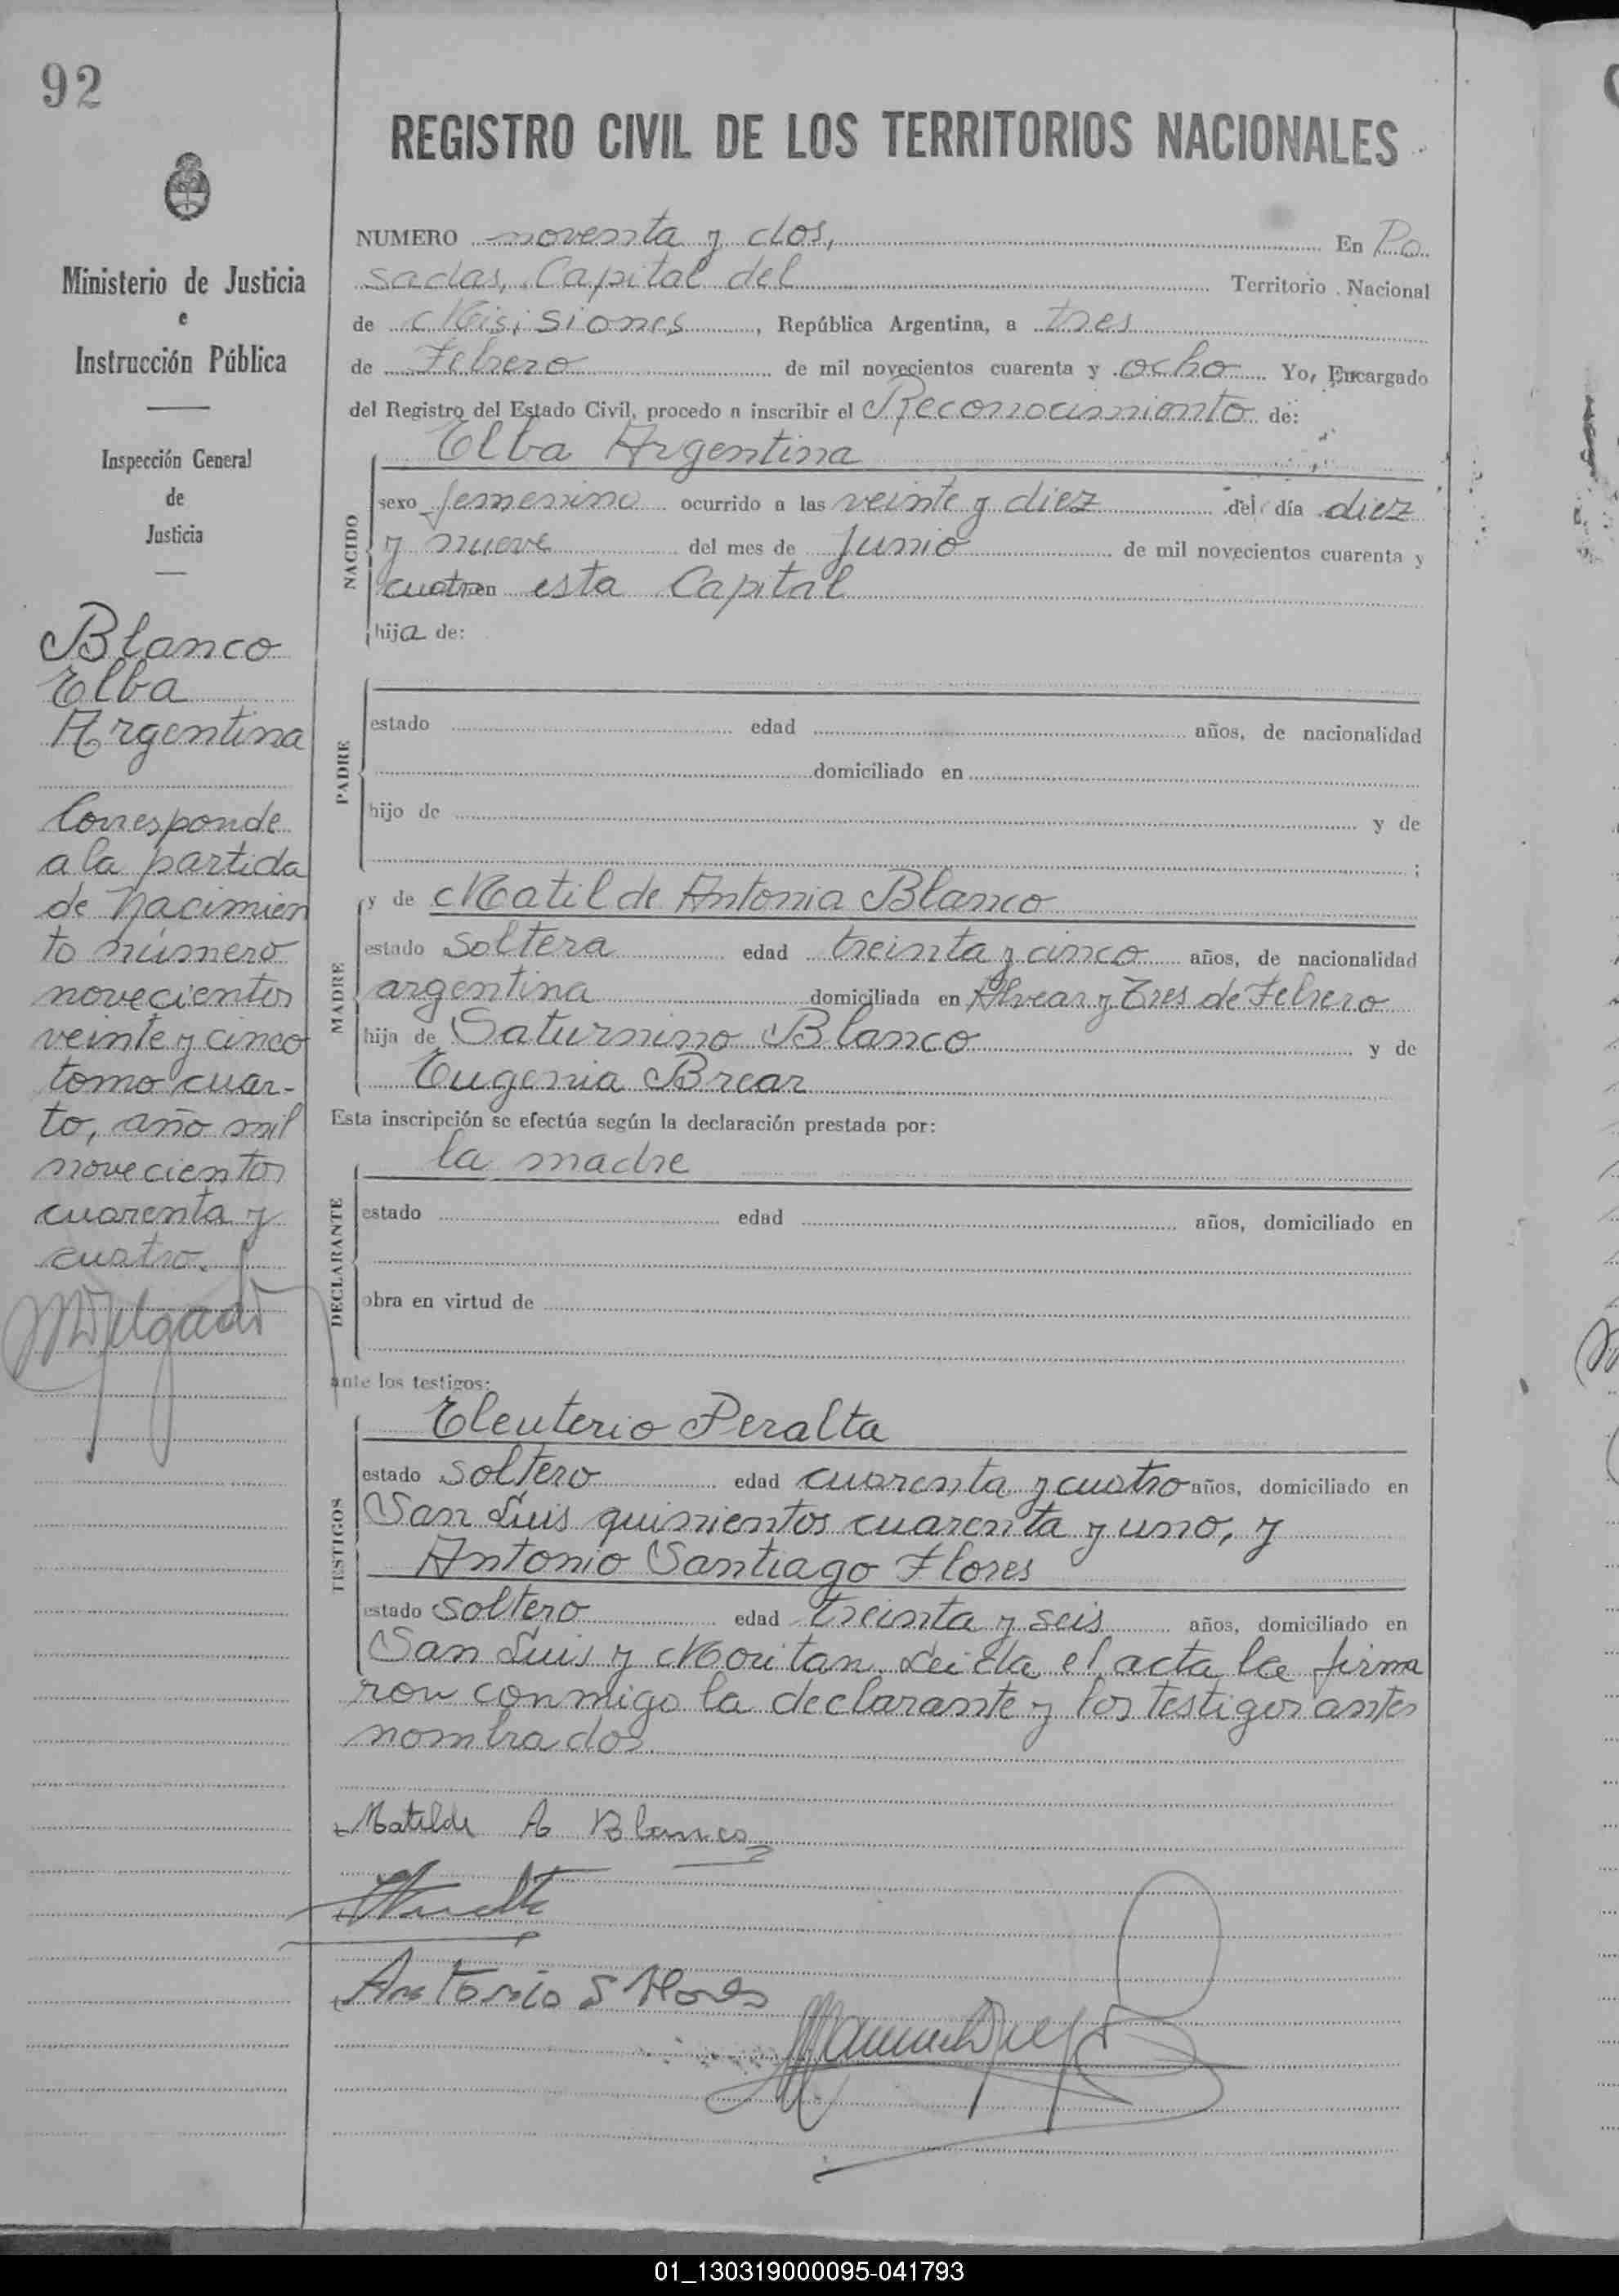 92
REGISTRO CIVIL DE LOS TERRITORIOS NACIONALES
Ministerio de Justicia
e
Instrucción Pública
Inspección General
de
Justicia
Blanco
Elba
Argentina
Corresponde
a la partida
de Nacimien
to número
novecientos
veinte y cinco
tomo cuar-
to, año mil
novecientos
cuarenta y
cuatro.
NUMERO noventa y dos, En Po
sadas, Capital del Territorio Nacional
de Misisiones, República Argentina, a tres
de Febrero de mil novecientos cuarenta y ocho Yo, Encargado
del Registro del Estado Civil, procedo a inscribir el Reconocimiento de:
Elba Argentina
NACIDO
sexo femenino ocurrido a las veinte y diez del día diez
y nueve del mes de Junio de mil novecientos cuarenta y
cuatro en esta Capital
hija de:
PADRE
estado edad años, de nacionalidad
domiciliado en
hijo de y de
;
MADRE
y de Matilde Antonia Blanco
estado soltera edad treinta y cinco años, de nacionalidad
argentina domiciliada en Alvear y Tres de Febrero
hija de Saturnino Blanco y de
Eugenia Brear
Esta inscripción se efectúa según la declaración prestada por:
la madre
DECLARANTE
estado edad años, domiciliado en
obra en virtud de
ante los testigos:
Eleuterio Peralta
TESTIGOS
estado soltero edad cuarenta y cuatro años, domiciliado en
San Luis quinientos cuarenta y uno, y
Antonio Santiago Flores
estado soltero edad treinta y seis años, domiciliado en
San Luis y Moritan. Leida el acta la firma
ron conmigo la declarante y los testigos antes
nombrados
Matilde A Blanco
Antonio S Flores
01_130319000095-041793